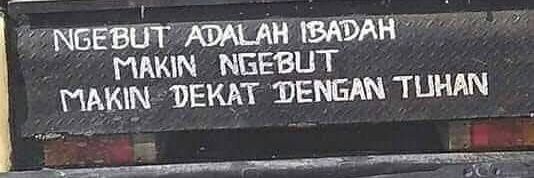 NGEBUT ADALAH IBADAH
MAKIN NGEBUT
MAKIN DEKAT DENGAN TUHAN